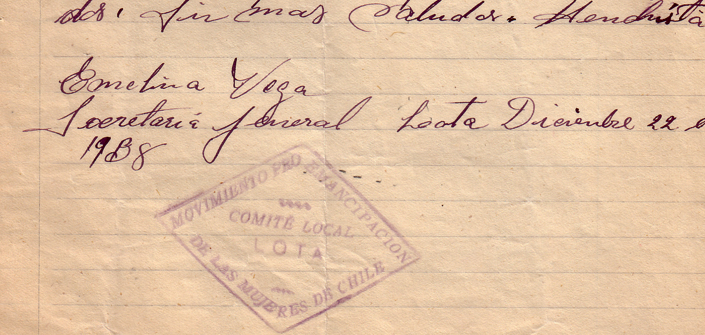 dos, Sin mas Saludos.
Emelina Vega
Secretaria general Loota Diciembre 22
1938
MOVIMIENTO PRO EMANCIPACION
COMITÉ LOCAL
LOTA
DE LAS MUJERES DE CHILE